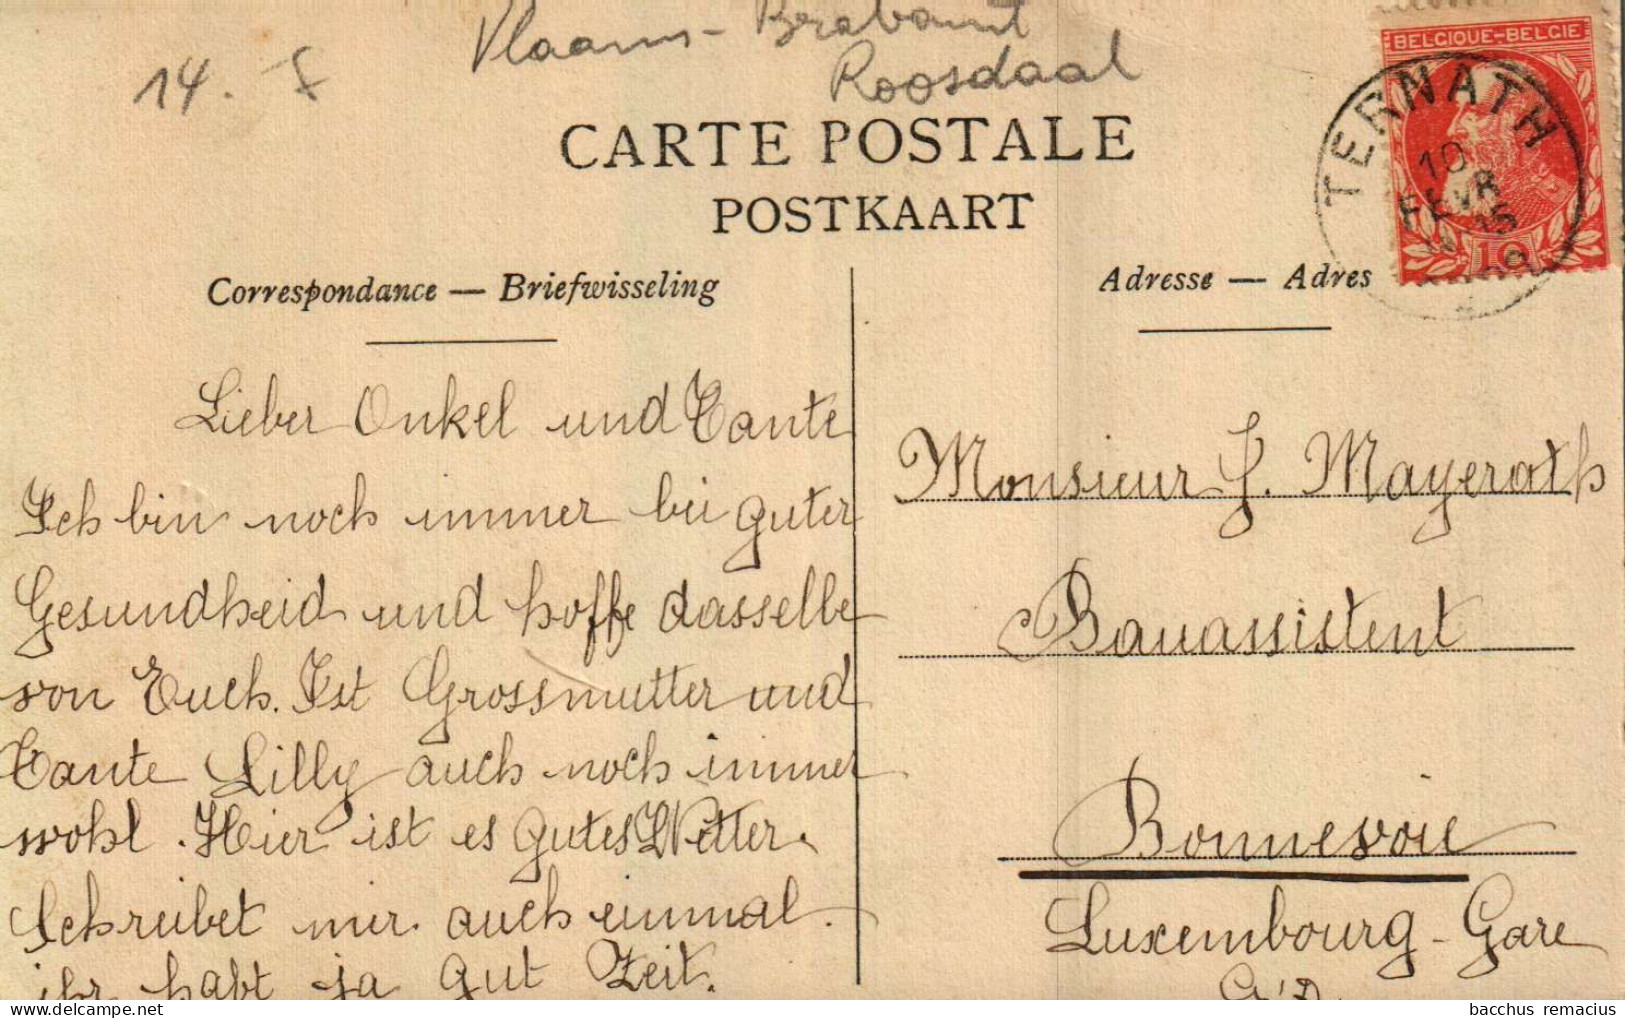 Vlaams-Brabant
Roosdaal
14.-
BELGIQUE-BELGIE
TERNATH
10
FEVR
10
CARTE POSTALE
POSTKAART
Correspondance — Briefwisseling
Adresse — Adres
Lieber Onkel und Tante
Ich bin noch immer bei guter
Gesundheid und hoffe dasselbe
von Euch. Ist Grossmutter und
Tante Lilly auch noch immer
wohl. Hier ist es gutes Wetter.
Schreibet mir auch einmal.
ihr habt ja gut Zeit.
Monsieur J. Mayerath
Bauassistent
Bonnevoie
Luxembourg-Gare
G'D.
bacchus remacius